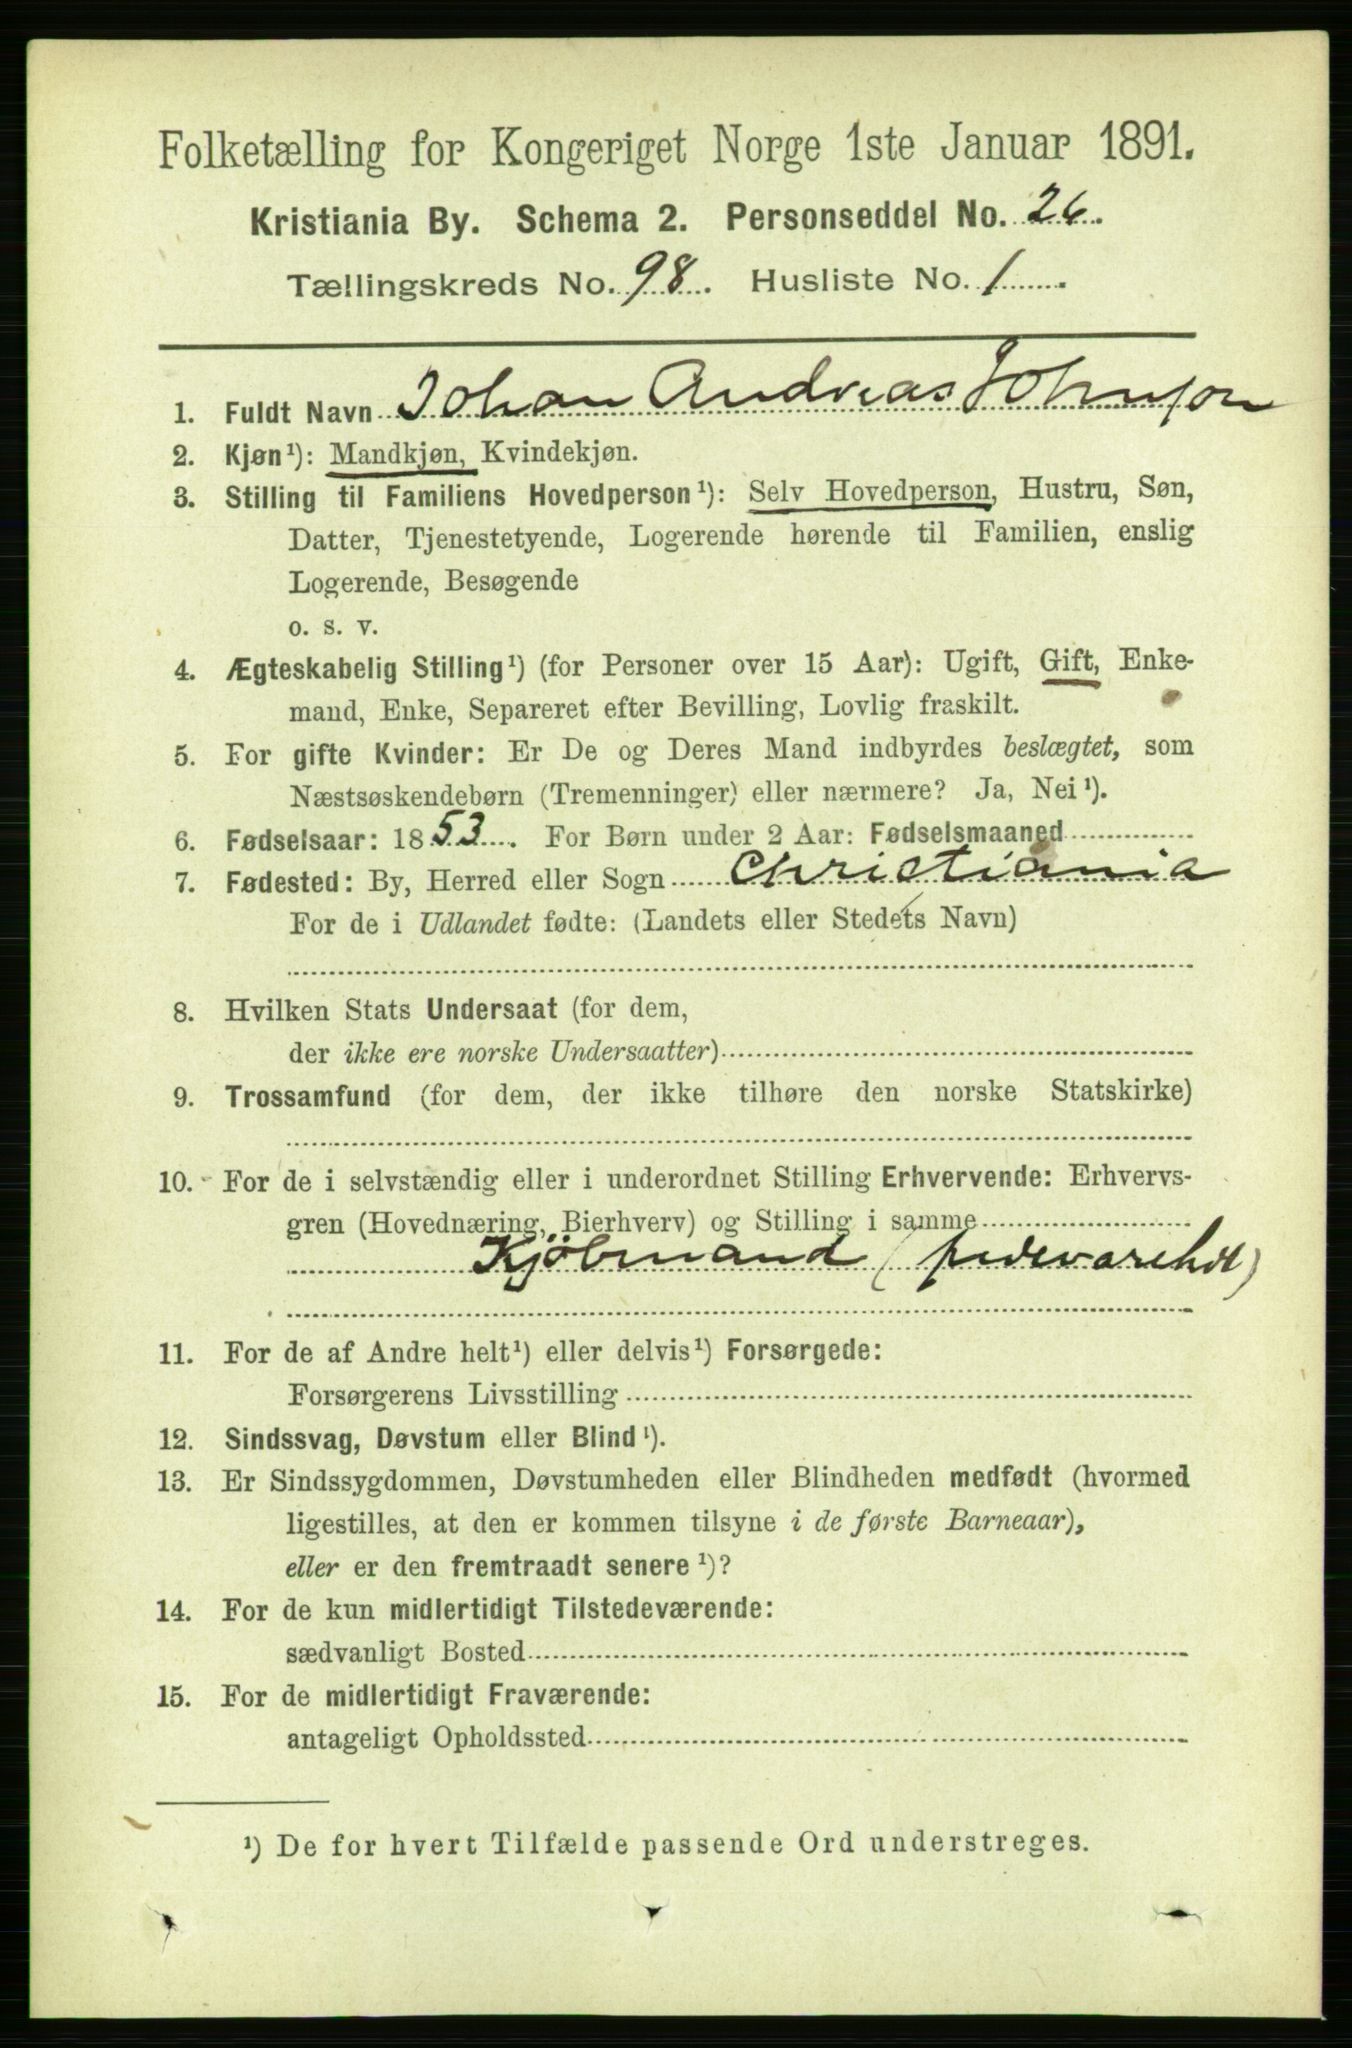 Folketælling for Kongeriget Norge 1ste Januar 1891.
Kristiania By. Schema 2. Personseddel No. 26.
Tællingskreds No. 98. Husliste No. 1.
1. Fuldt Navn Johan Andreas Johnson
2. Kjøn¹): Mandkjøn, Kvindekjøn.
3. Stilling til Familiens Hovedperson¹): Selv Hovedperson, Hustru, Søn,
Datter, Tjenestetyende, Logerende hørende til Familien, enslig
Logerende, Besøgende
o. s. v.
4. Ægteskabelig Stilling¹) (for Personer over 15 Aar): Ugift, Gift, Enke-
mand, Enke, Separeret efter Bevilling, Lovlig fraskilt.
5. For gifte Kvinder: Er De og Deres Mand indbyrdes beslægtet, som
Næstsøskendebørn (Tremenninger) eller nærmere? Ja, Nei¹).
6. Fødselsaar: 1853. For Børn under 2 Aar: Fødselsmaaned
7. Fødested: By, Herred eller Sogn Christiania
For de i Udlandet fødte: (Landets eller Stedets Navn)
8. Hvilken Stats Undersaat (for dem,
der ikke ere norske Undersaatter)
9. Trossamfund (for dem, der ikke tilhøre den norske Statskirke)
10. For de i selvstændig eller i underordnet Stilling Erhvervende: Erhvervs-
gren (Hovednæring, Bierhverv) og Stilling i samme
Kjöbmand (fedevarehdl)
11. For de af Andre helt¹) eller delvis¹) Forsørgede:
Forsørgerens Livsstilling
12. Sindssvag, Døvstum eller Blind¹).
13. Er Sindssygdommen, Døvstumheden eller Blindheden medfødt (hvormed
ligestilles, at den er kommen tilsyne i de første Barneaar),
eller er den fremtraadt senere¹)?
14. For de kun midlertidigt Tilstedeværende:
sædvanligt Bosted
15. For de midlertidigt Fraværende:
antageligt Opholdssted
¹) De for hvert Tilfælde passende Ord understreges.